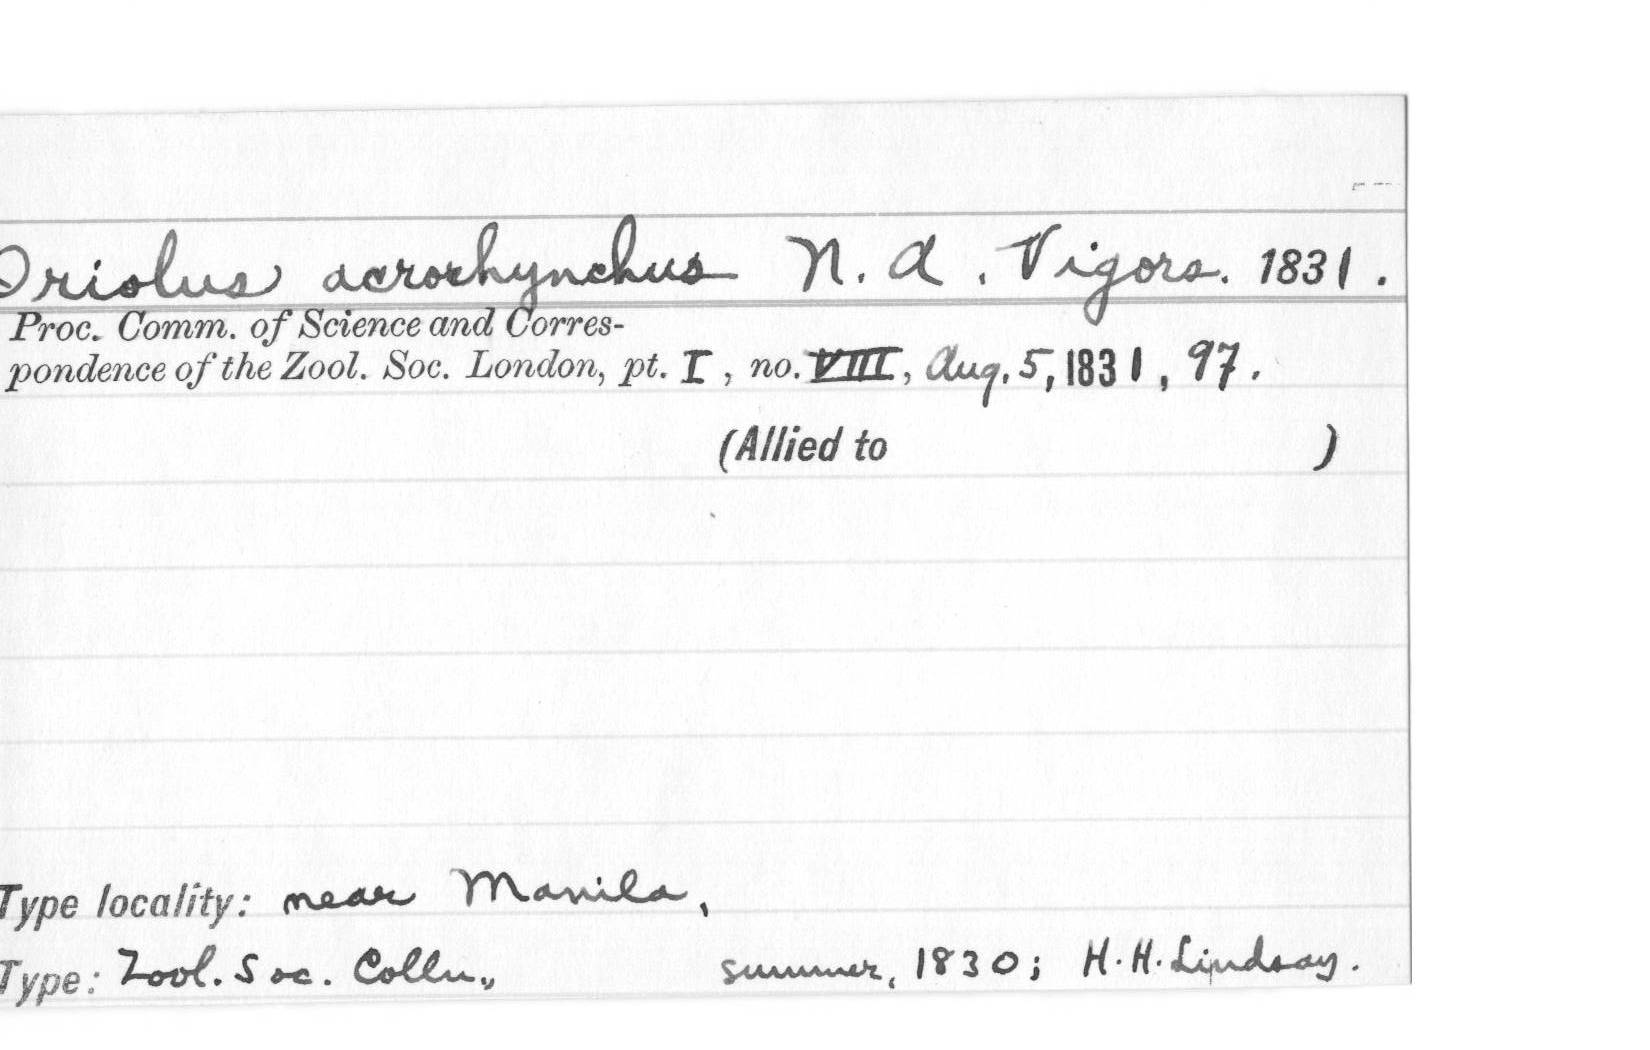 Oriolus acrorhynchus N. A. Vigors. 1831.
Proc. Comm. of Science and Corres-
pondence of the Zool. Soc. London, pt. I, no. VIII, Aug. 5, 1831, 97.
(Allied to )
Type locality: near Manila,
Type: Zool. Soc. Colln., summer, 1830; H. H. Lindsay.